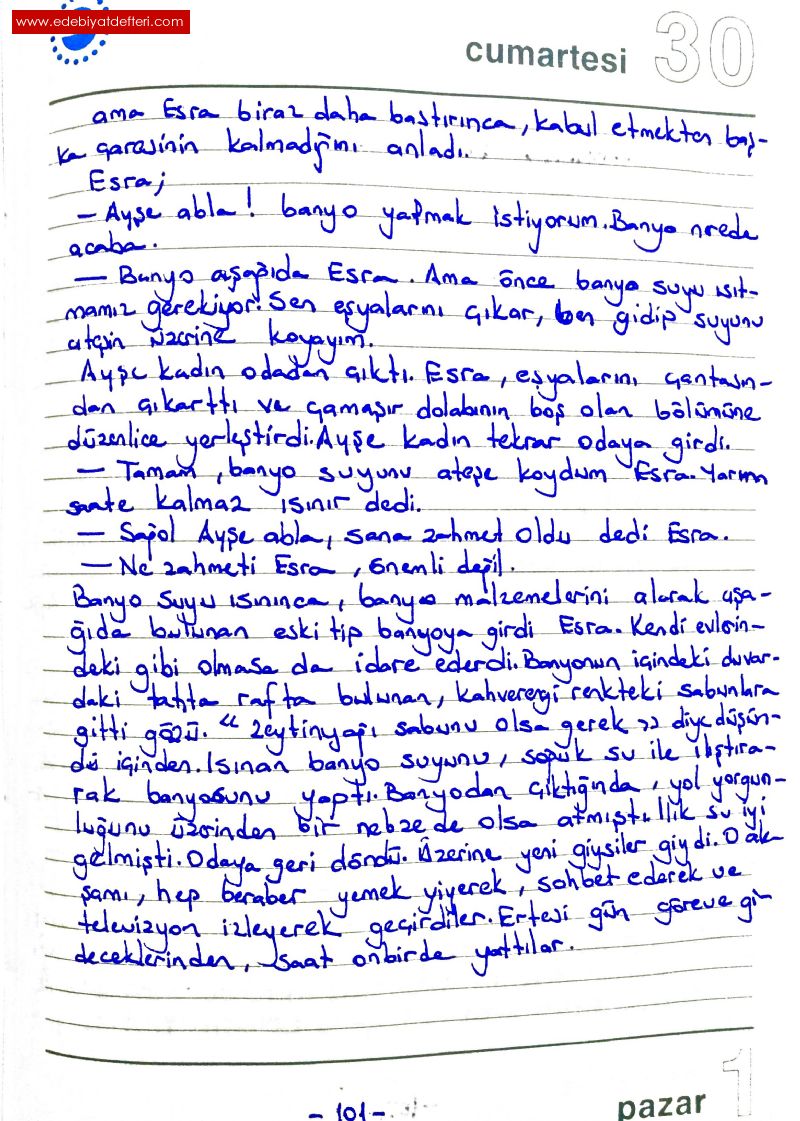 www.edebiyatdefteri.com
cumartesi 30
ama Esra biraz daha bastırınca, kabul etmekten baş-
ka çaresinin kalmadığını anladı.
Esra;
– Ayşe abla! banyo yapmak istiyorum. Banyo nerede
acaba.
– Banyo aşağıda Esra. Ama önce banyo suyu ısıt-
mamız gerekiyor. Sen eşyalarını çıkar, ben gidip suyunu
ateşin üzerine koyayım.
Ayşe kadın odadan çıktı. Esra, eşyalarını çantasın-
dan çıkarttı ve çamaşır dolabının boş olan bölümüne
düzenlice yerleştirdi. Ayşe kadın tekrar odaya girdi.
– Tamam, banyo suyunu ateşe koydum Esra. Yarım
saate kalmaz ısınır dedi.
– Sağol Ayşe abla, sana zahmet oldu dedi Esra.
– Ne zahmeti Esra, önemli değil.
Banyo suyu ısınınca, banyo malzemelerini alarak aşa-
ğıda bulunan eski tip banyoya girdi Esra. Kendi evlerin-
deki gibi olmasa da idare ederdi. Banyonun içindeki duvar-
daki tahta rafta bulunan, kahverengi renkteki sabunlara
gitti gözü. "Zeytinyağı sabunu olsa gerek" diye düşün-
dü içinden. Isınan banyo suyunu, soğuk su ile ılıştıra-
rak banyosunu yaptı. Banyodan çıktığında, yol yorgun-
luğunu üzerinden bir nebze de olsa atmıştı. Ilık su iyi
gelmişti. Odaya geri döndü. Üzerine yeni giysiler giydi. O ak-
şamı, hep beraber yemek yiyerek, sohbet ederek ve
televizyon izleyerek geçirdiler. Ertesi gün göreve gi-
deceklerinden, saat onbirde yattılar.
- 101 -
pazar 1